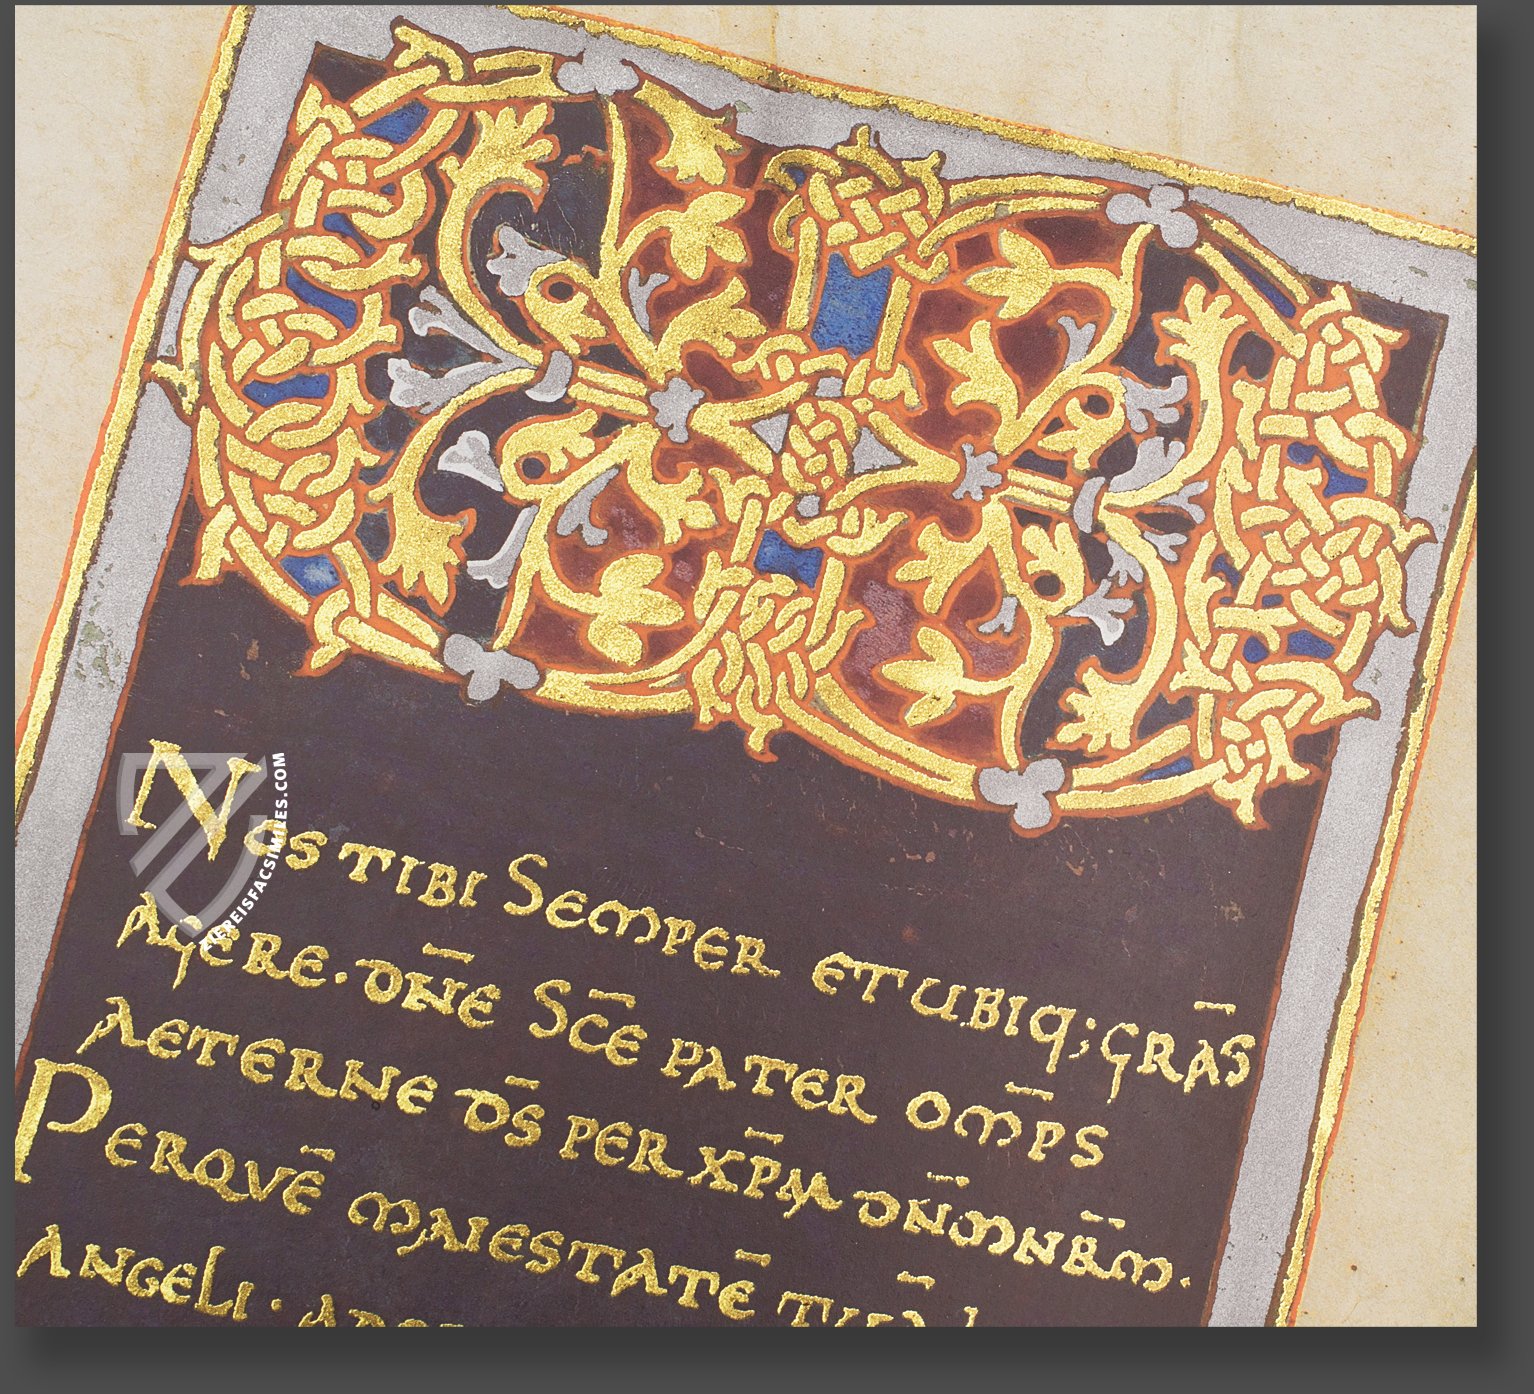 NOS TIBI SEMPER ET UBIQ; GRĀS
AGERE· DN̄E SC̄E PATER OMP̄S
AETERNE DS̄ PER XP̄M DN̄M NR̄M·
PERQUĒ MAIESTATĒ TUĀ L
ANGELI·
ZIEREISFACSIMILES.COM